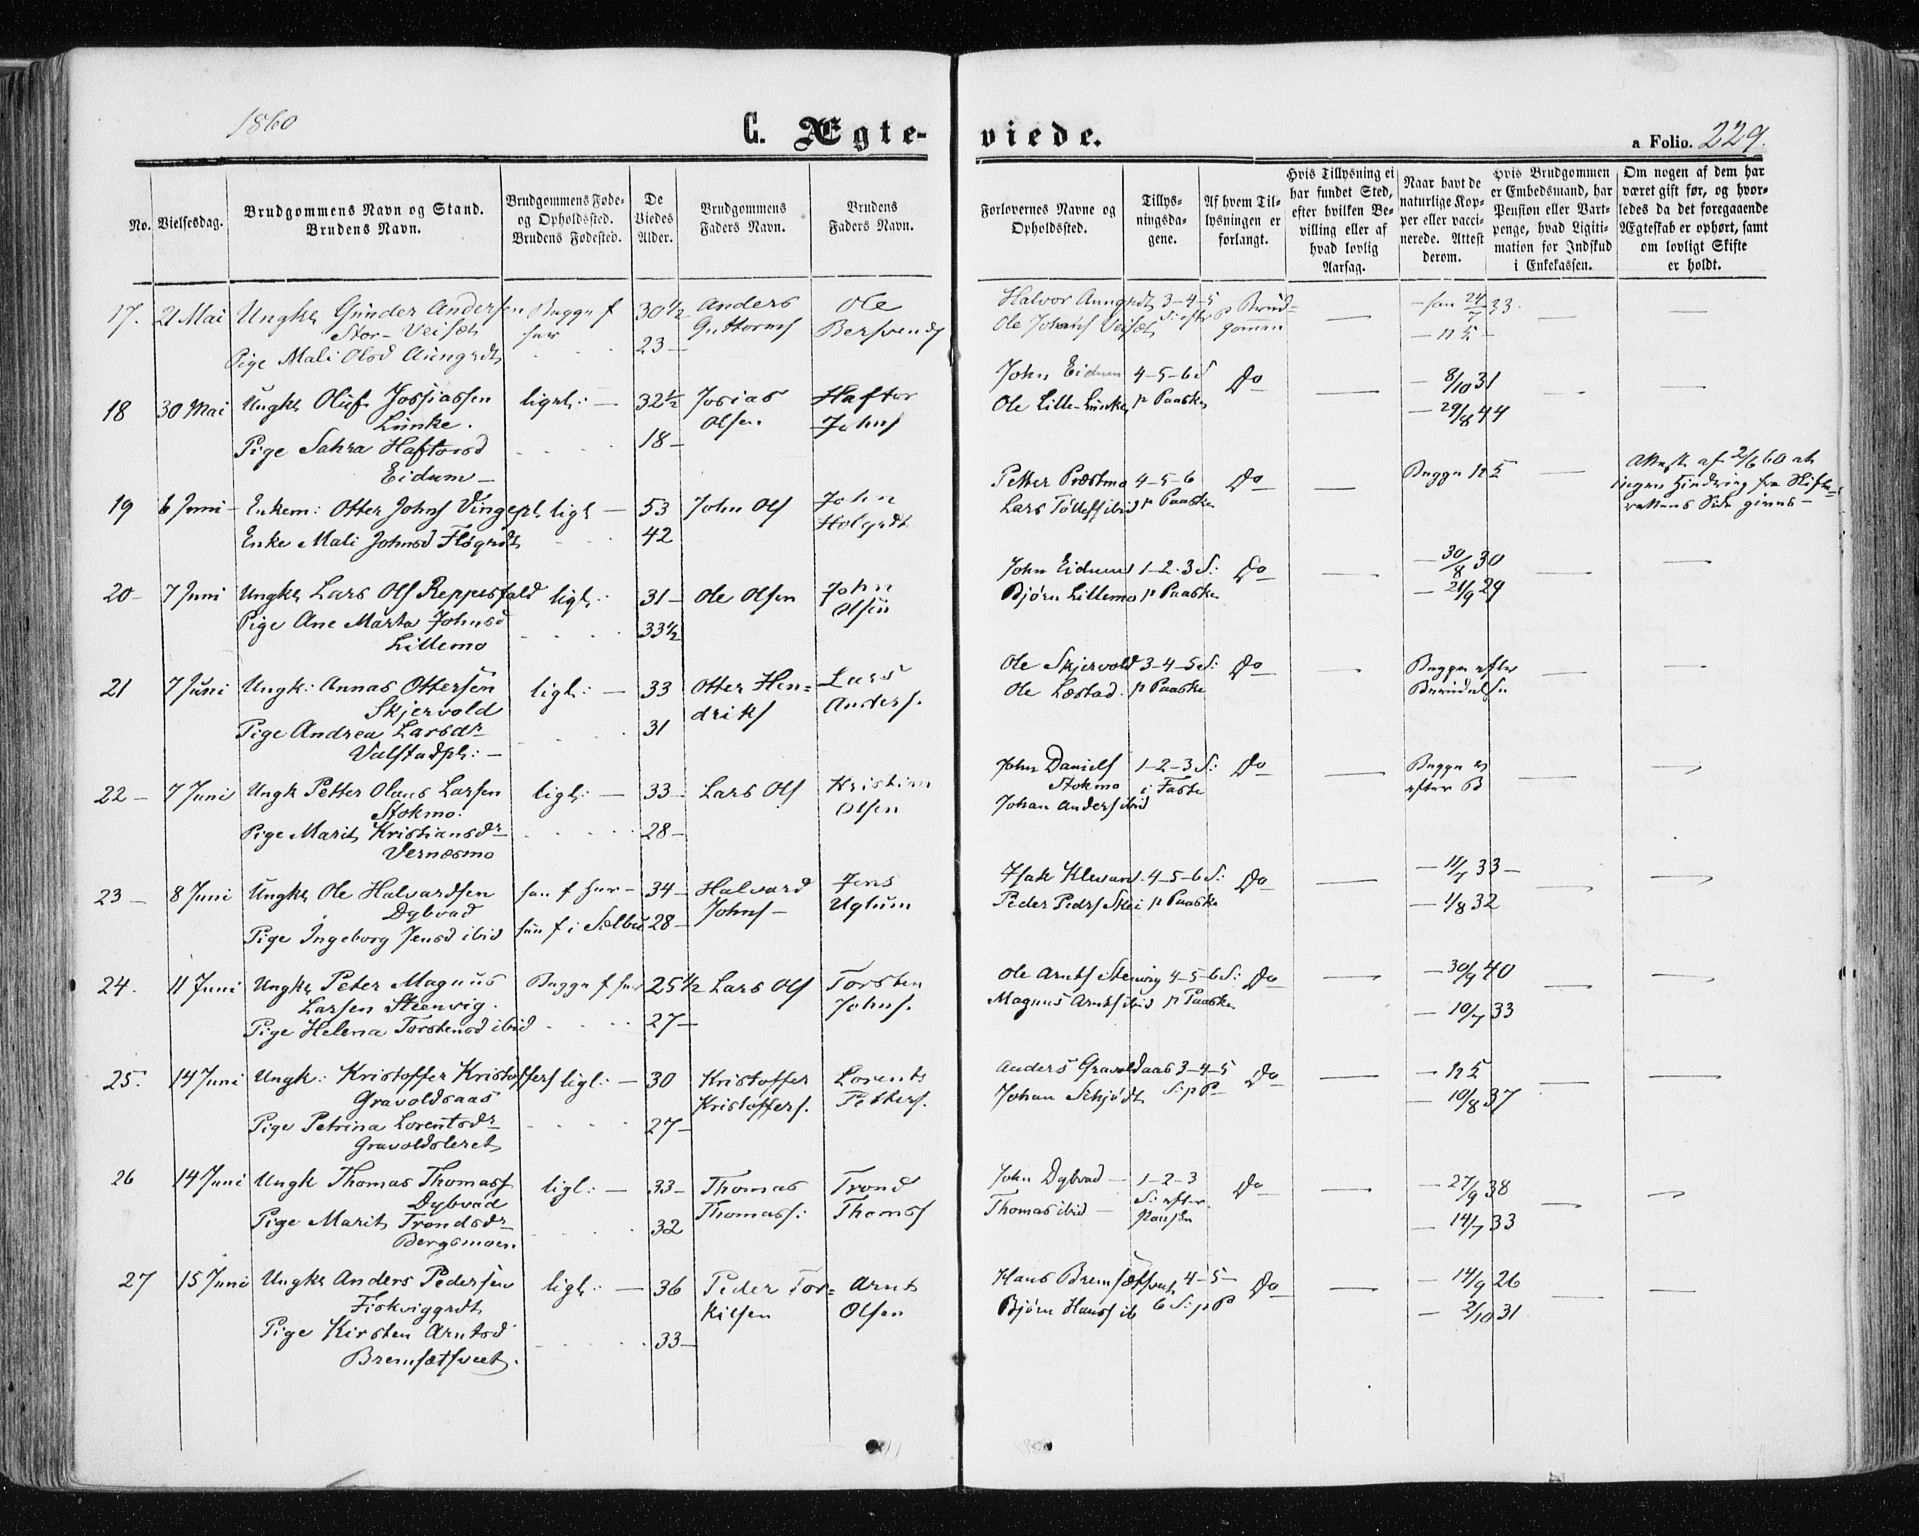 1860
C. Ægte-
viede.
a Folio. 229.
No.
Vielsesdag.
Brudgommens Navn og Stand.
Brudens Navn.
Brudgommens Føde-
og Opholdssted.
Brudens Fødested.
De
Viedes
Alder.
Brudgommens
Faders Navn.
Brudens
Faders Navn.
Forlovernes Navne og
Opholdssted.
Tillys-
ningsda-
gene.
Af hvem Til-
lysningen er
forlangt.
Hvis Tillysning ei
har fundet Sted,
efter hvilken Be-
villing eller af
hvad lovlig
Aarsag.
Naar havt de
naturlige Kop-
per eller vacci-
nerede. Attest
derom.
Hvis Brudgommen
er Embedsmand, har
Pension eller Vart-
penge, hvad Ligiti-
mation for Indskud
i Enkekassen.
Om nogen af dem har
været gift før, og hvor-
ledes da det foregaaende
Ægteskab er ophørt, samt
om lovligt Skifte
er holdt.
17. 21 Mai Ungk Gunder Andersen Begge f 30 1/2 Anders Ole
Stor- Veisæt her Guttorms Bersvends
Pige Mali Olsd Aungrdt 23-
Halvor Aungrdt 3-4-5 Brud-
Ole Johans Veisæt S: efter P goman
24/7 33.
18 30 Mai Ungk Oluf Jossiassen ligel: - 32 1/2 Josias Haftor
Lunke. Olsen Johns
Pige Sahra Haftorsd 18-
Eidum-
John Eidum 4-5-6 S Do - 8/10 31
Ole Lille-Lunke p Paaske - 29/8 44
19 6 Juni- Enkem: Otter Johns Vingepl ligl - 53 John Ols John
Enke Mali Johnsd Fløgrdt 42 Holgrdt
Petter Præstmo 4-5-6 Do Begge
Lars ibid p Paaske
Attest af 2/6 60 at
ingen Hindring fra Skifte-
rettens Side gives-
20- 7 Juni Ungk Lars Ols Reppesfald ligl: 31- Ole Olsen John
Pige Ane Marta Johnsd 33 1/2 Olsen
Lillemo
John Eidum 1-2-3 S: Do - 30/8 30
Bjørn Lillemo p Paaske - 21/9 29
21 7 Juni Ungk: Annas Ottersen ligl: - 33 Otter Hen= Lars
Skjervold driks Anders.
Pige Andrea Larsdr 31
Valstadpl: -
Ole Skjervold 3-4-5 S: Do Begge efter
Ole Læstad. p Paaske
22- 7 Juni Ungk Petter Olaus Larsen ligl: - 33- Lars Ols Kristian
Stokmo. Olsen
Pige Marit Kristiansdr 28-
Vernæsmo
John Daniels 1-2-3 S: Do Begge
Stokmo i Faste efter B
Johan Anders ibid
23- 8 Juni Ungk Ole Halvardsen han f her- 34- Halvard Jens
Dybvad Johns- Uglum
Pige Ingeborg Jensd ibid hun f i Selbu 28-
Isak Klevan. 4-5-6 S: Do - 11/7 33-
Peder Peders Skei p Paaske - 1/8 32
24. 11 Juni Ungk Peter Magnus Begge f her 25 1/2 Lars Ols Torsten
Larsen Steenvig. Johns.
Pige Helena Torstensd ibid 27-
Ole Arnts Stenvig 4-5-6 S: Do - 30/9 40
Magnus Arnts ibid p Paaske - 10/7 33
25. 14 Juni Ungk: Kristoffer Kristoffers ligl: - 30 Kristoffer Lorents
Gravoldsaas Kristoffers. Petters.
Pige Petrina Lorentsdr 27-
Gravoldsleret
Anders Gravoldaas 3-4-5 Do
Johan Schjødt S: p P - 10/8 37
26 14 Juni Ungk Thomas Thomass ligl: - 33- Thomas Trond
Dybvad Thomass: Thoms
Pige Marit Trondsdr 32
Bergsmoen
John Dybvad - 1-2-3 Do - 27/9 38
Thomas ibid - S: efter - 14/7 33
Paaske
27 15 Juni Ungk Anders Pedersen ligl: - 36 Peder Tor= Arnt
Fiskviggrdt kilsen Olsen
Pige Kirsten Arntsd 33-
Bremsætsveet.
Hans Bremsætsveet 4-5- Do - 14/9 26
Bjørn Hans ib 6 S: p P - 2/10 31